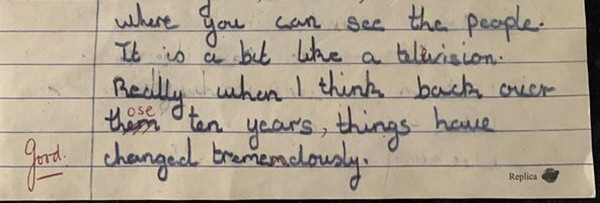 where you can see the people.
It is a bit like a television.
Really when I think back over
ose
them ten years, things have
Good. changed tremendously.
Replica